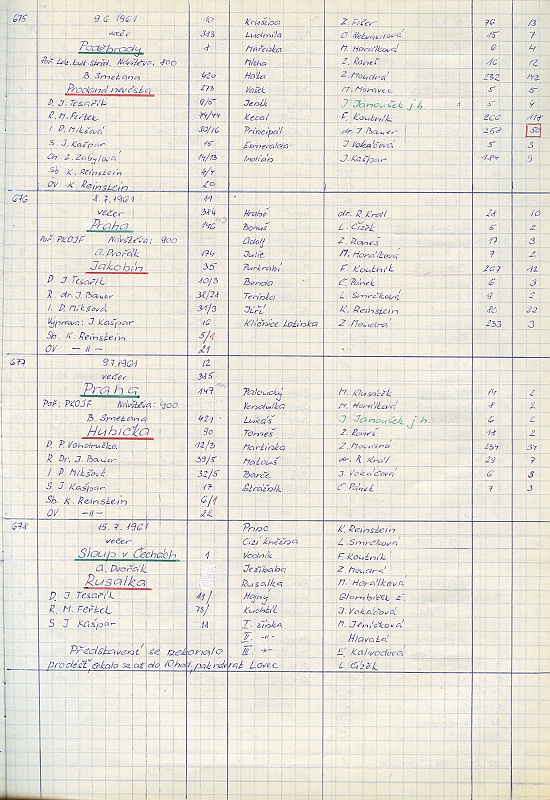 675 9.6.1961 10 Krušina Z. Fišer 76 13
večer 383 Ludmila O. Nebrasilová 15 7
Poděbrady 1 Mařenka M. Horálková 6 4
Mícha Z. Roneš 16 12
B. Smetana 420 Háta Z. Moudrá 232 142
Prodaná nevěsta 273 Vašek M. Moravec 5 5
D. J. Tesařík 9/5 Jeník J Janoušek j.h. 5 4
R. M. Feřtek 74/44 Kecal F. Koutník 266 118
I. D. Mikšová 30/16 Principál dr. J Bauer 258 50
S. J. Kašpar 15 Esmeralda J. Vokáčová 5 3
Ch. Z. Zabylová 14/13 Indián J. Kašpar 184 9
Sb K. Reinstein 4/4
OV K Reinstein 20
676 8.7.1961 11
večer 384 Hrabě dr. R. Kroll 28 10
Praha 146 Bohuš L. Čížek 5 2
Poř PKOJF Návštěva: 900 Adolf Z. Roneš 17 3
A. Dvořák 174 Julie M. Horálková 7 2
Jakobín 35 Purkrabí F. Koutník 267 12
D. J Tesařík 10/3 Benda Č. Pánek 6 3
R. dr. J. Bauer 38/28 Terinka L. Smrčková 9 2
I. D. Mikšová 31/3 Jiří K. Reinstein 80 22
Výprava: J. Kašpar 16 Klíčnice Lotinka Z. Moudrá 233 3
Sb. K. Reinstein 5/1
OV — 11 — 21
677 9.7.1961 12
večer 385
Praha 147 Paloucký M. Klusáček 14 2
Poř. PKOJF Návštěva: 900 Vendulka M. Horálková 8 2
B. Smetana 421 Lukáš J Janoušek j.h. 6 2
Hubička 90 Tomeš Z. Roneš 18 2
D. P. Vondruška 12/3 Martinka Z. Moudrá 234 31
R Dr. J. Bauer 39/5 Matouš dr. R. Kroll 29 7
I D. Mikšová 32/5 Barče J. Vokáčová 6 3
S J Kašpar 17 Strážník Č Pánek 7 3
Sb. K. Reinstein 6/1
OV —11— 22
678 15.7.1961 Princ K. Reinstein
večer Cizí kněžna L. Smrčková
Sloup v Čechách 1 Vodník F. Koutník
A. Dvořák Ježibaba Z. Moudrá
Rusalka Rusalka M. Horálková
D. J. Tesařík 11/ Hajný
R. M. Feřtek 75/ Kuchtík J. Vokáčová
S J Kašpar 18 I. žínka M. Jeníčková
II. -11- Hlavatá
Představení se nekonalo III -11- E. Kalivodová
pro déšť, čekalo se až do 10 hod, pak návrat Lovec L. Čížek